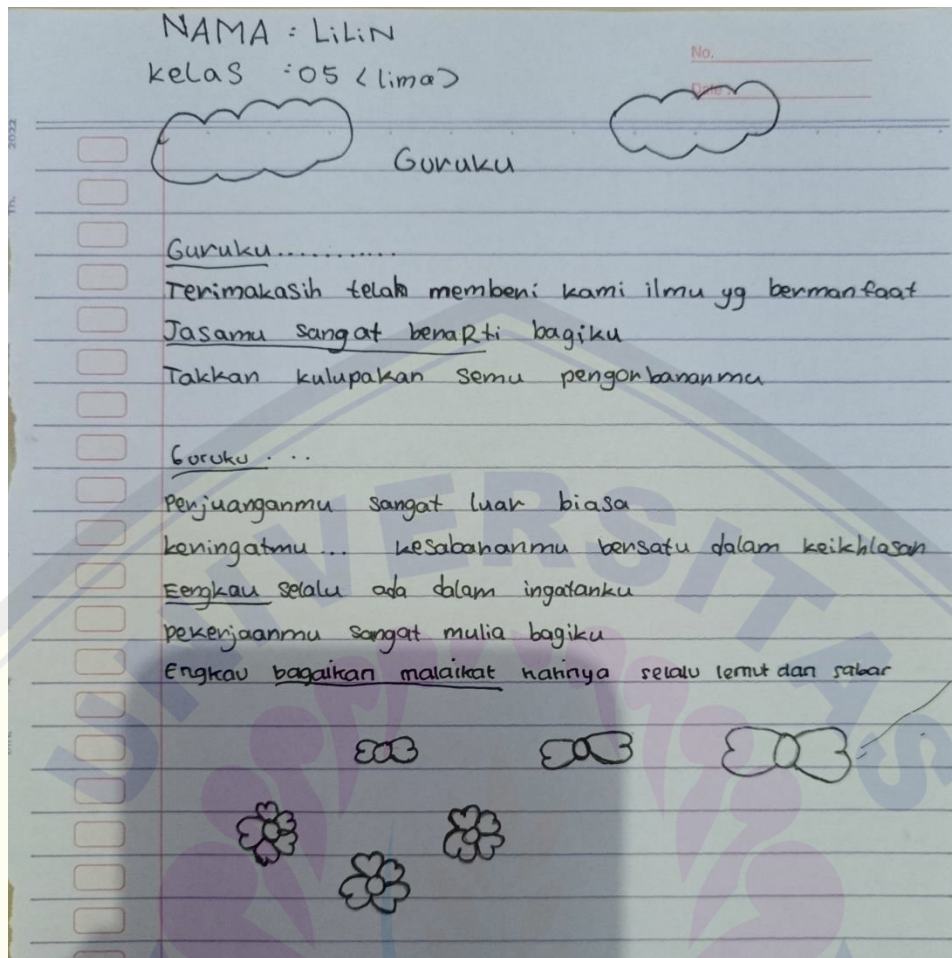 NAMA : LiLiN
Kelas : 05 (lima)
No.
Date :
2022
Guruku
Guruku ...........
Terimakasih telah memberi kami ilmu yg bermanfaat
Jasamu sangat beraRti bagiku
Takkan kulupakan semu pengorbananmu
Guruku . . .
Perjuanganmu sangat luar biasa
keringatmu ... kesabaranmu bersatu dalam keikhlasan
Eengkau selalu ada dalam ingatanku
pekerjaanmu sangat mulia bagiku
Engkau bagaikan malaikat selalu lemut dan sabar
UNIVERSITAS